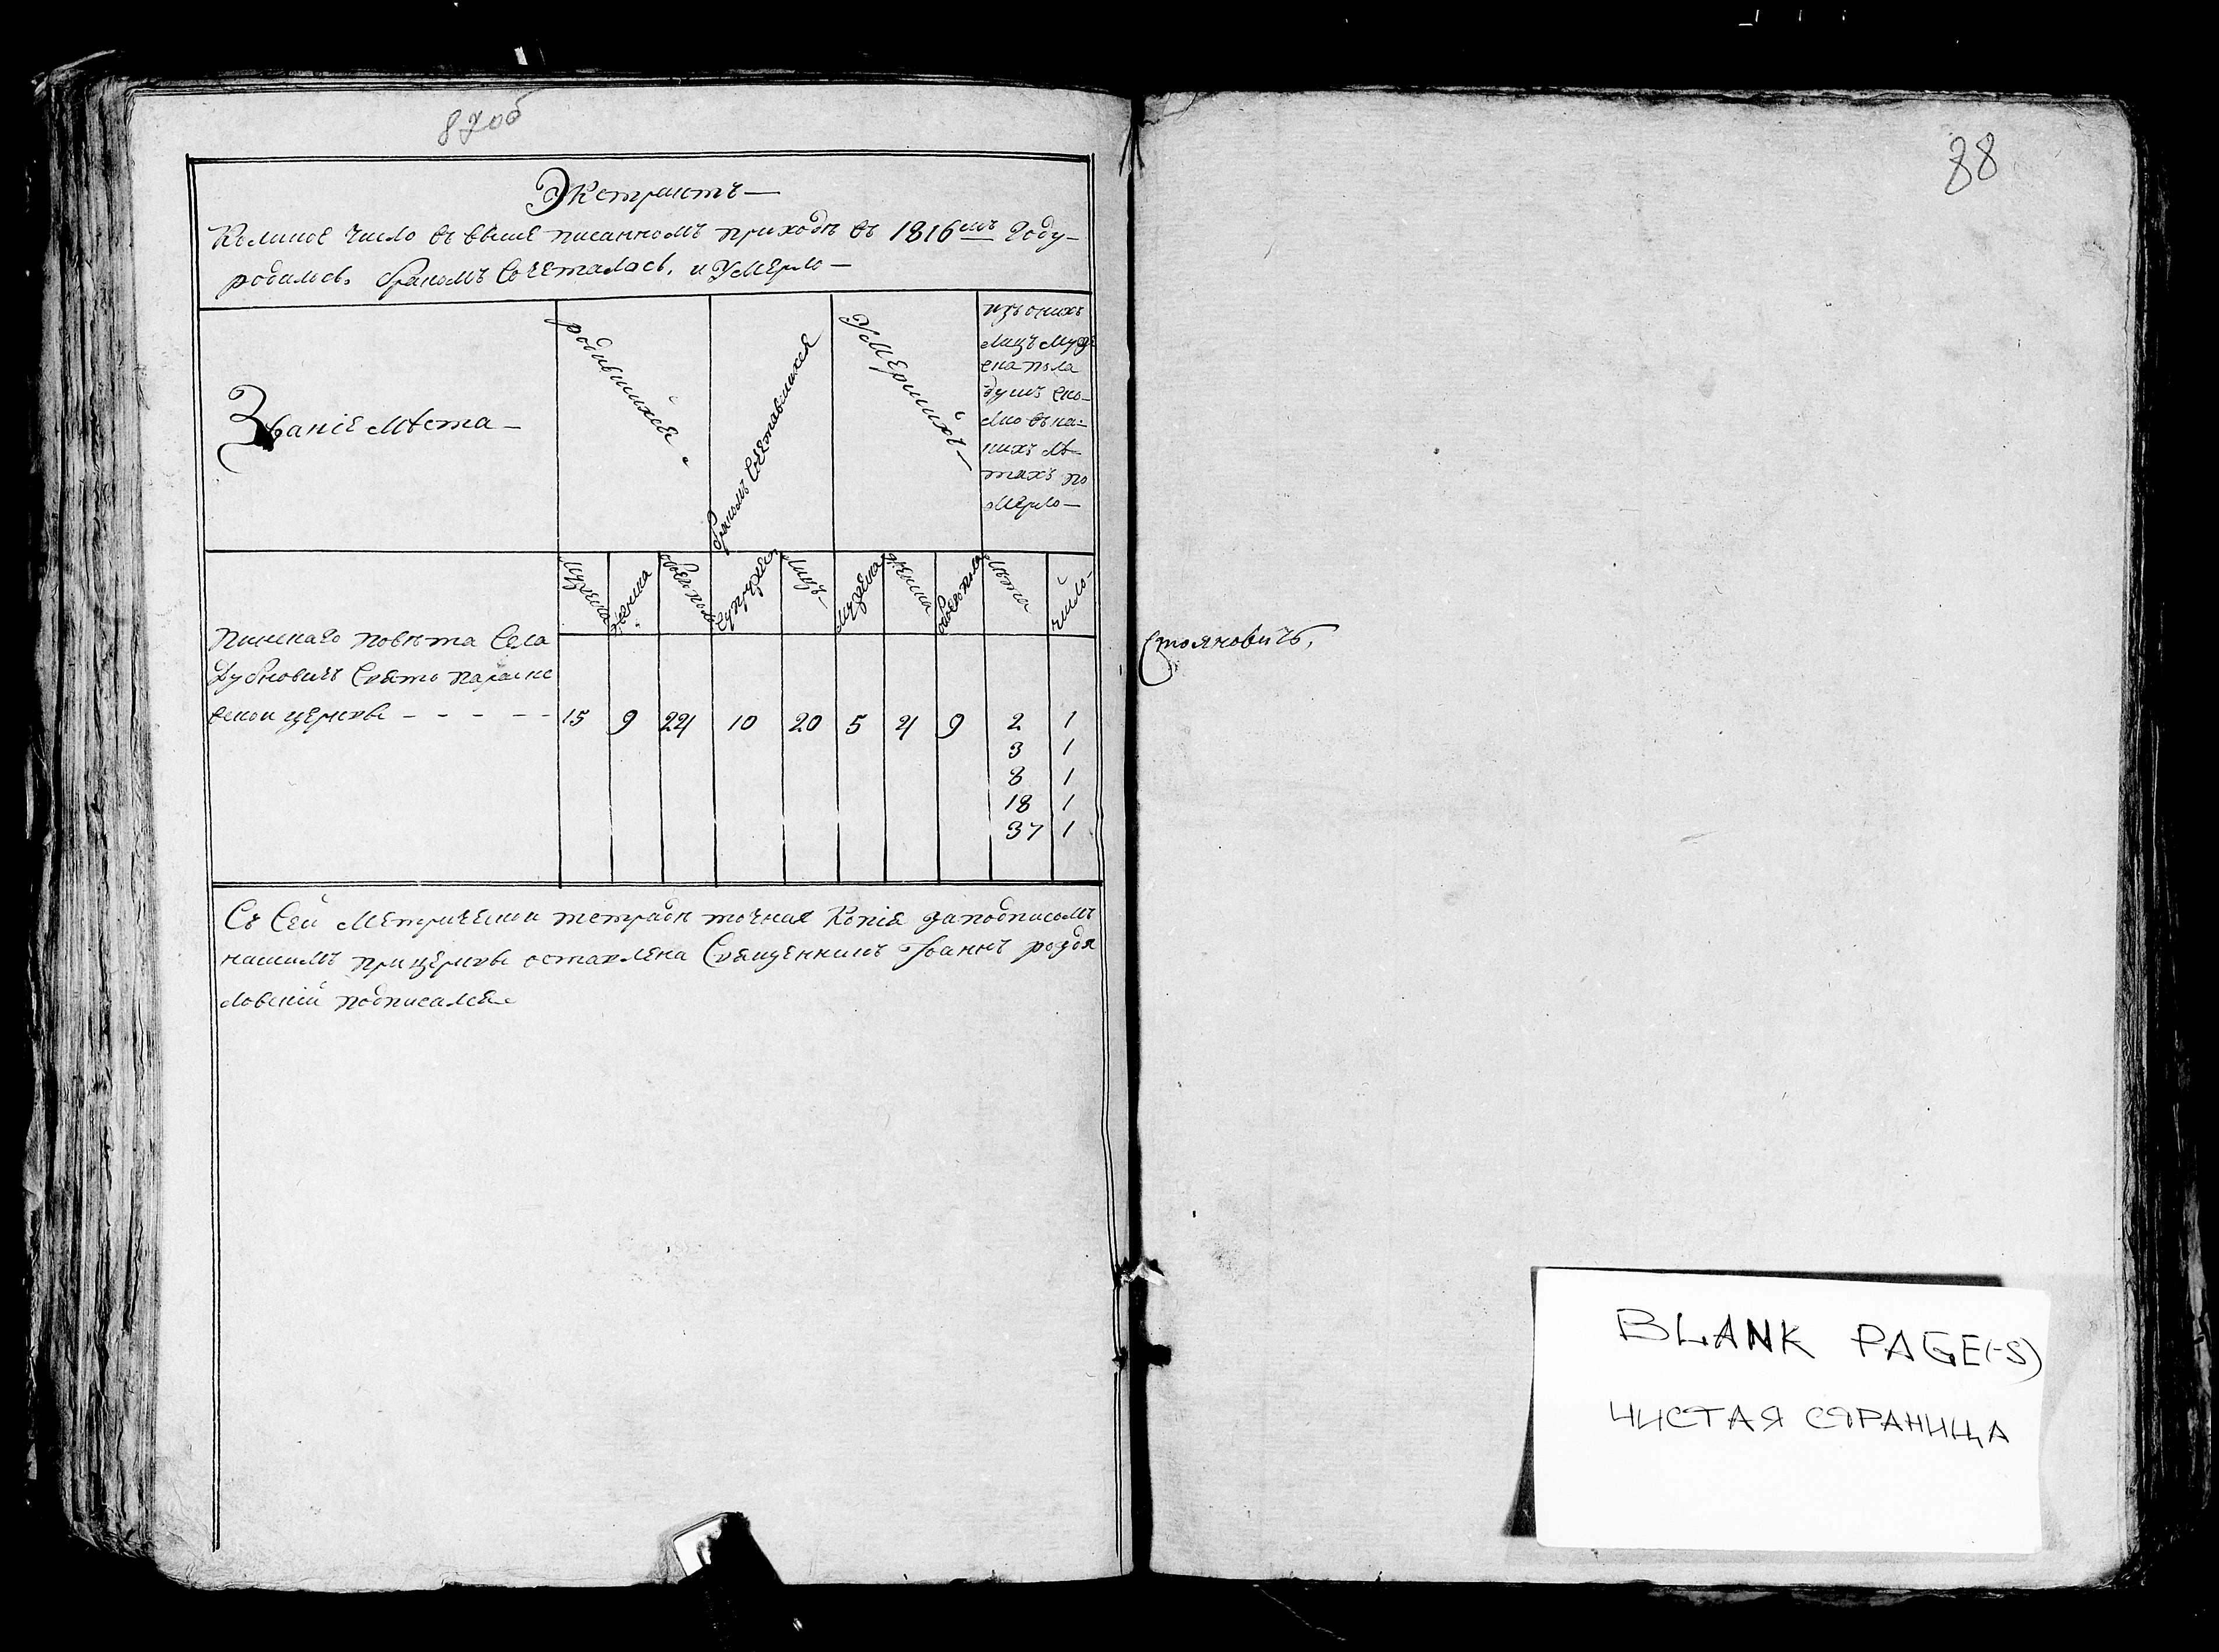 87об
Экстрактъ—
Коликое число въ выше писанномъ приходѣ въ 1816мъ году—
родилось. бракомъ сочеталась, и умерло—
Званіе мѣста—
родившихся
бракомъ сочетавшихся
умершихъ—
изъ онихъ
лицъ муже
ска пола
душъ ско—
лко въ ка=
кихъ лѣ
тахъ по
мерло—
мужеска
женска
обоегопола
супружес
лицъ—
мужеска
женска
обоегопола
лѣта
число—
Пинскаго повѣта села
Дубновичъ Свято Параске
вской церкви - - - - -
15 9 24 10 20 5 4 9 2 1
3 1
8 1
18 1
37 1
Съ сей метрическои тетради точная копія заподписомъ
нашимъ при церкви оставлена Священникъ Іоаннъ розди
ловскій подписался
88
Стояновичъ,
BLANK PAGE(-S)
ЧИСТАЯ СТРАНИЦА